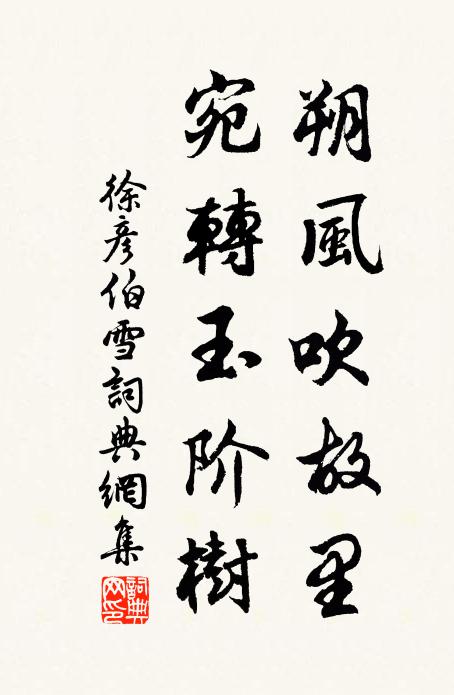 朔風吹故里
宛轉玉阶樹
徐彦伯雪詞典網集
詞典網印